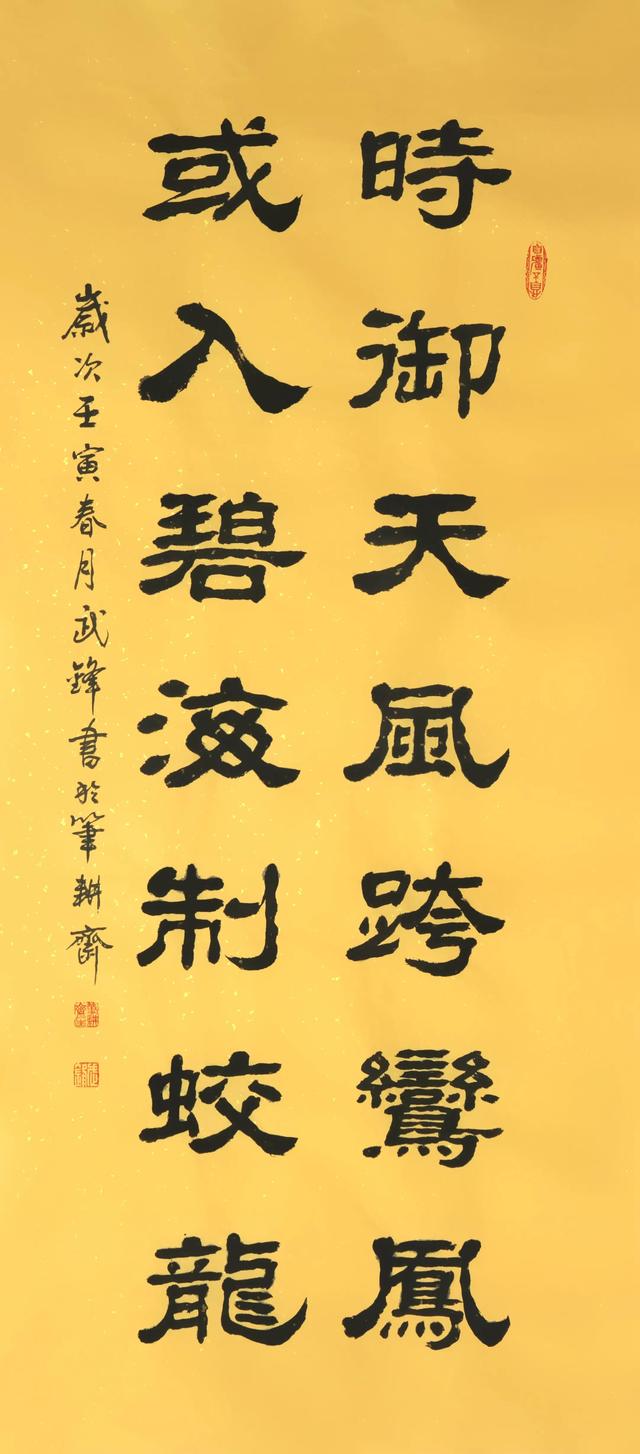 時御天風跨鸞鳳
或入碧海制蛟龍
歲次壬寅春月武鋒書於筆耕齋